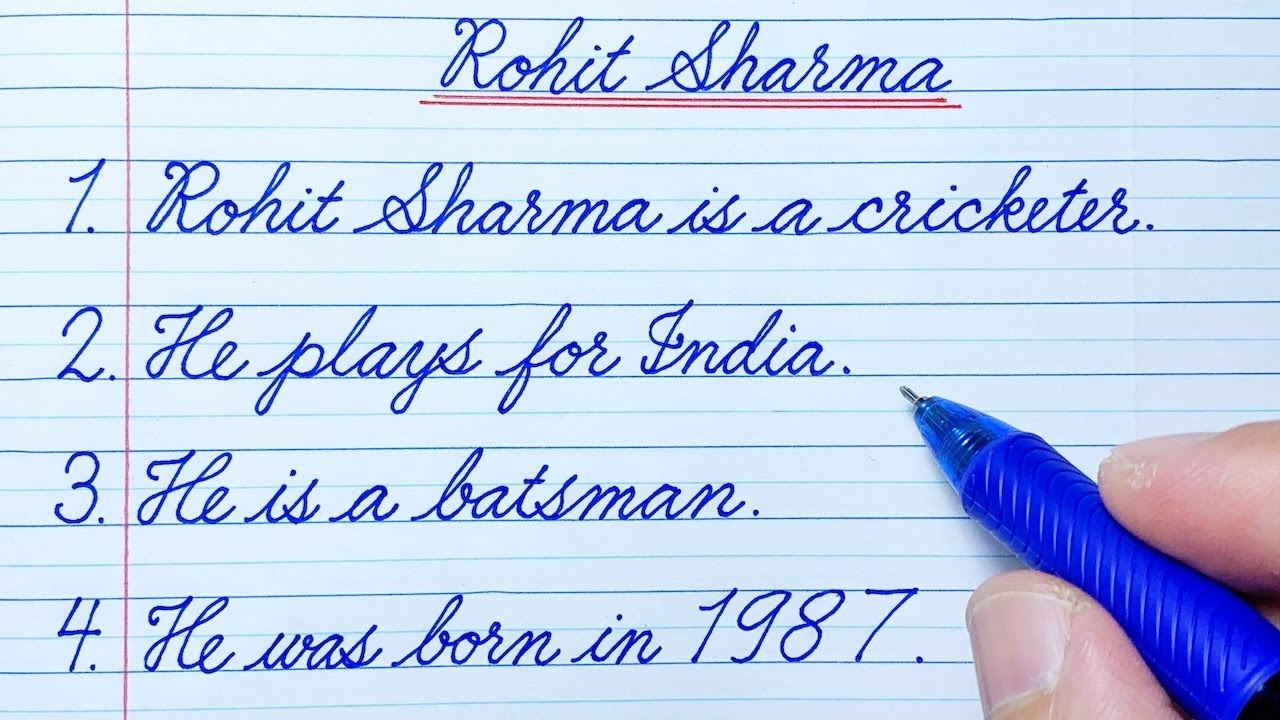 Rohit Sharma
1. Rohit Sharma is a cricketer.
2. He plays for India.
3. He is a batsman.
4. He was born in 1987.